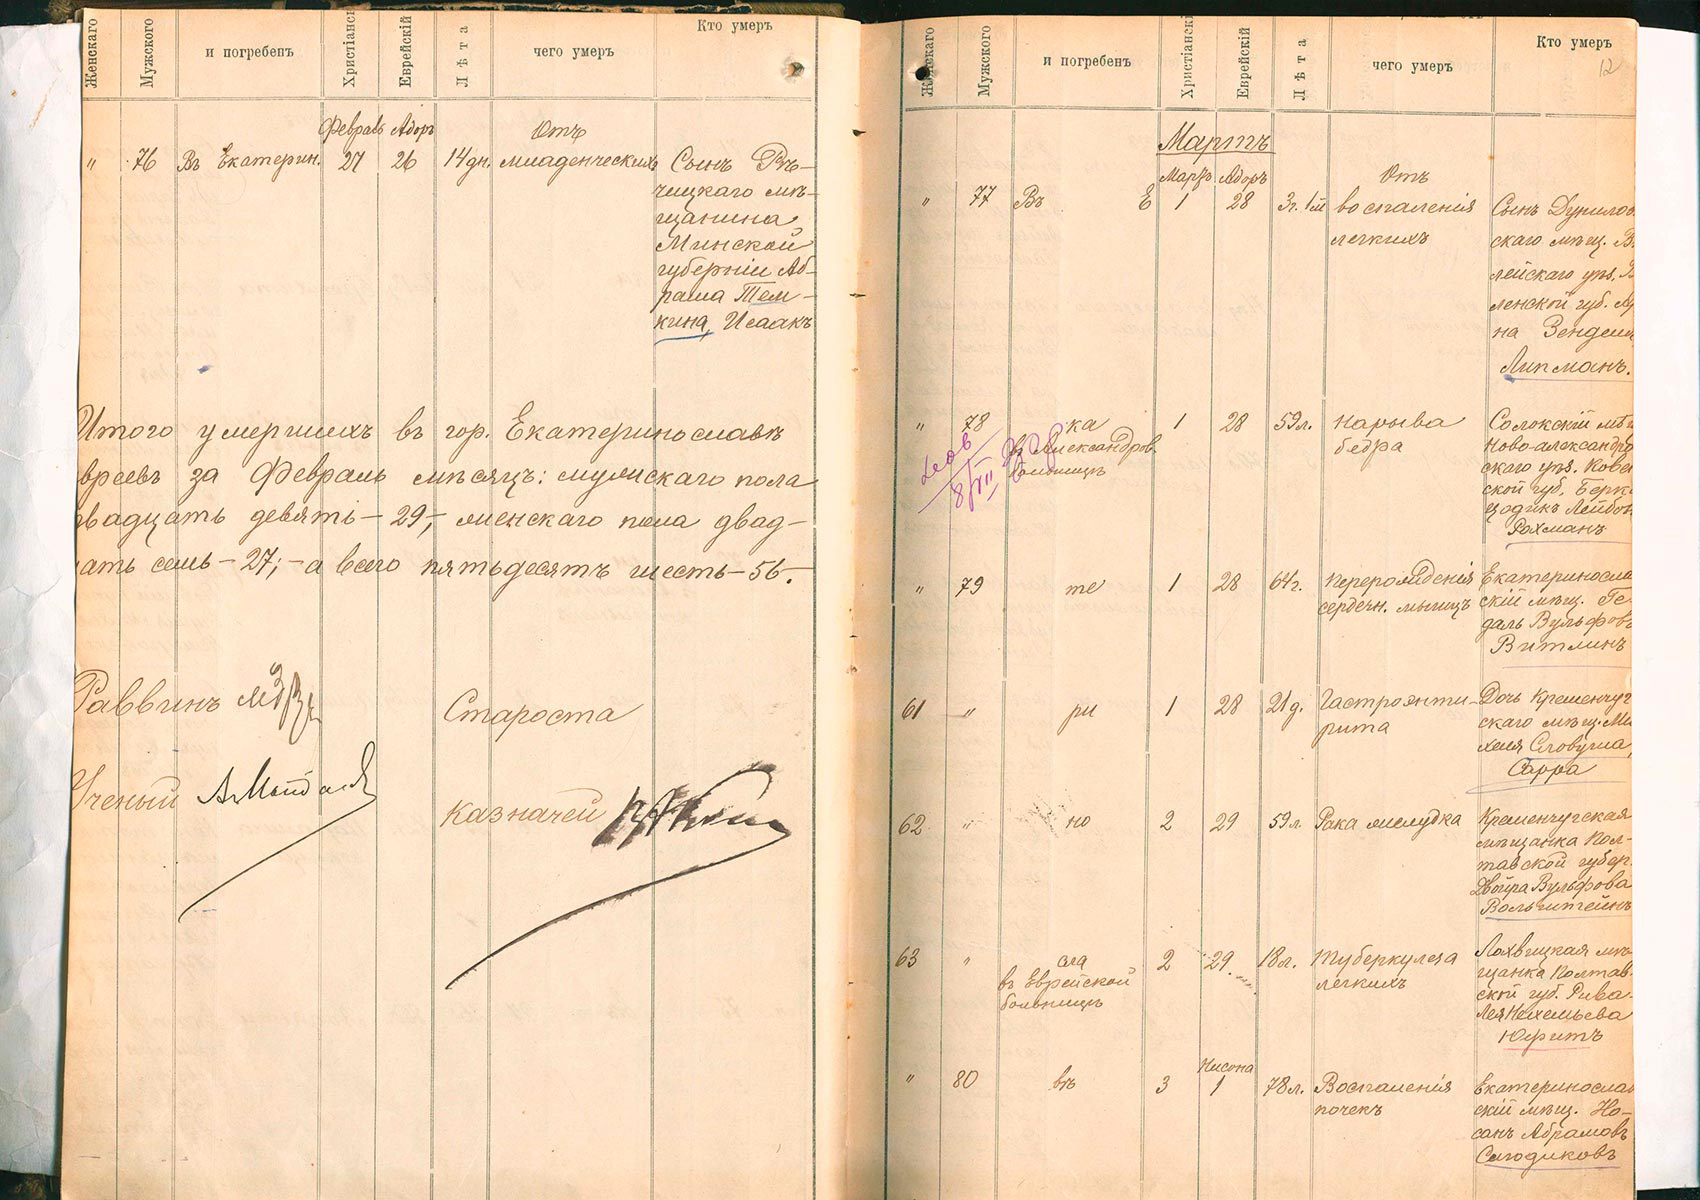 Женскаго
Мужского
и погребенъ
Христіанс
Еврейскій
Лѣта
чего умеръ
Кто умеръ
Февраль Адоръ
Отъ
" 76 Въ Екатерин. 27 26 14 дн. младенческихъ Сынъ Рѣ-
чицкаго мѣ-
щанина
Минской
губерніи Аб-
рама Тем-
кина, Исаакъ
Итого умершихъ въ гор. Екатеринославѣ
вреевъ за Февраль мѣсяцъ: мужскаго пола
двадцать девять - 29, женскаго пола двад-
ать семь - 27; - а всего пятьдесятъ шесть - 56.
Раввинъ
Староста
Ученый
Казначей
Женскаго
Мужского
и погребенъ
Христіанскі
Еврейскій
Лѣта
чего умеръ
Кто умеръ
12
Мартъ
Мартъ Адоръ
Отъ
" 77 Въ Е 1 28 3г. 1 м воспаленія
легкихъ
Сынъ Дунилов
скаго мѣщ. В
лейскаго уѣз. В
ленской губ.
на Зендели
Липманъ.
" 78 ка 1 28 59 л. нарыва
бедра
въ Александров.
больницѣ
8/VII
Солокскій мѣщ
Ново-александро
скаго уѣз. Ковен
ской губ. Берка
цодикъ Лейбов
Рохманъ
" 79 те 1 28 64 г. перерожденія
сердечн. мышцъ
Екатеринослав
скій мѣщ. Ге-
даль Вульфовъ
Витлинъ
61 " ри 1 28 21 д. Гастроэнте-
рита
Дочь Кременчуг
скаго мѣщ. Ми
хеля Словуша,
Сарра
62 " но 2 29 59 л. Рака желудка
Кременчугская
мѣщанка Пол-
тавской губер.
Двойра Вульфова
Вольштейнъ
63 " сла 2 29 18 л. Туберкулеза
легкихъ
въ Еврейской
больницѣ
Лохвицкая мѣ-
щанка Полтав-
ской губ. Рива-
Лея Нехемьева
Юфитъ
Нисона
" 80 въ 3 1 78 л. Воспаленія
почекъ
Екатеринослав
скій мѣщ. Но-
санъ Абрамовъ
Слободиковъ